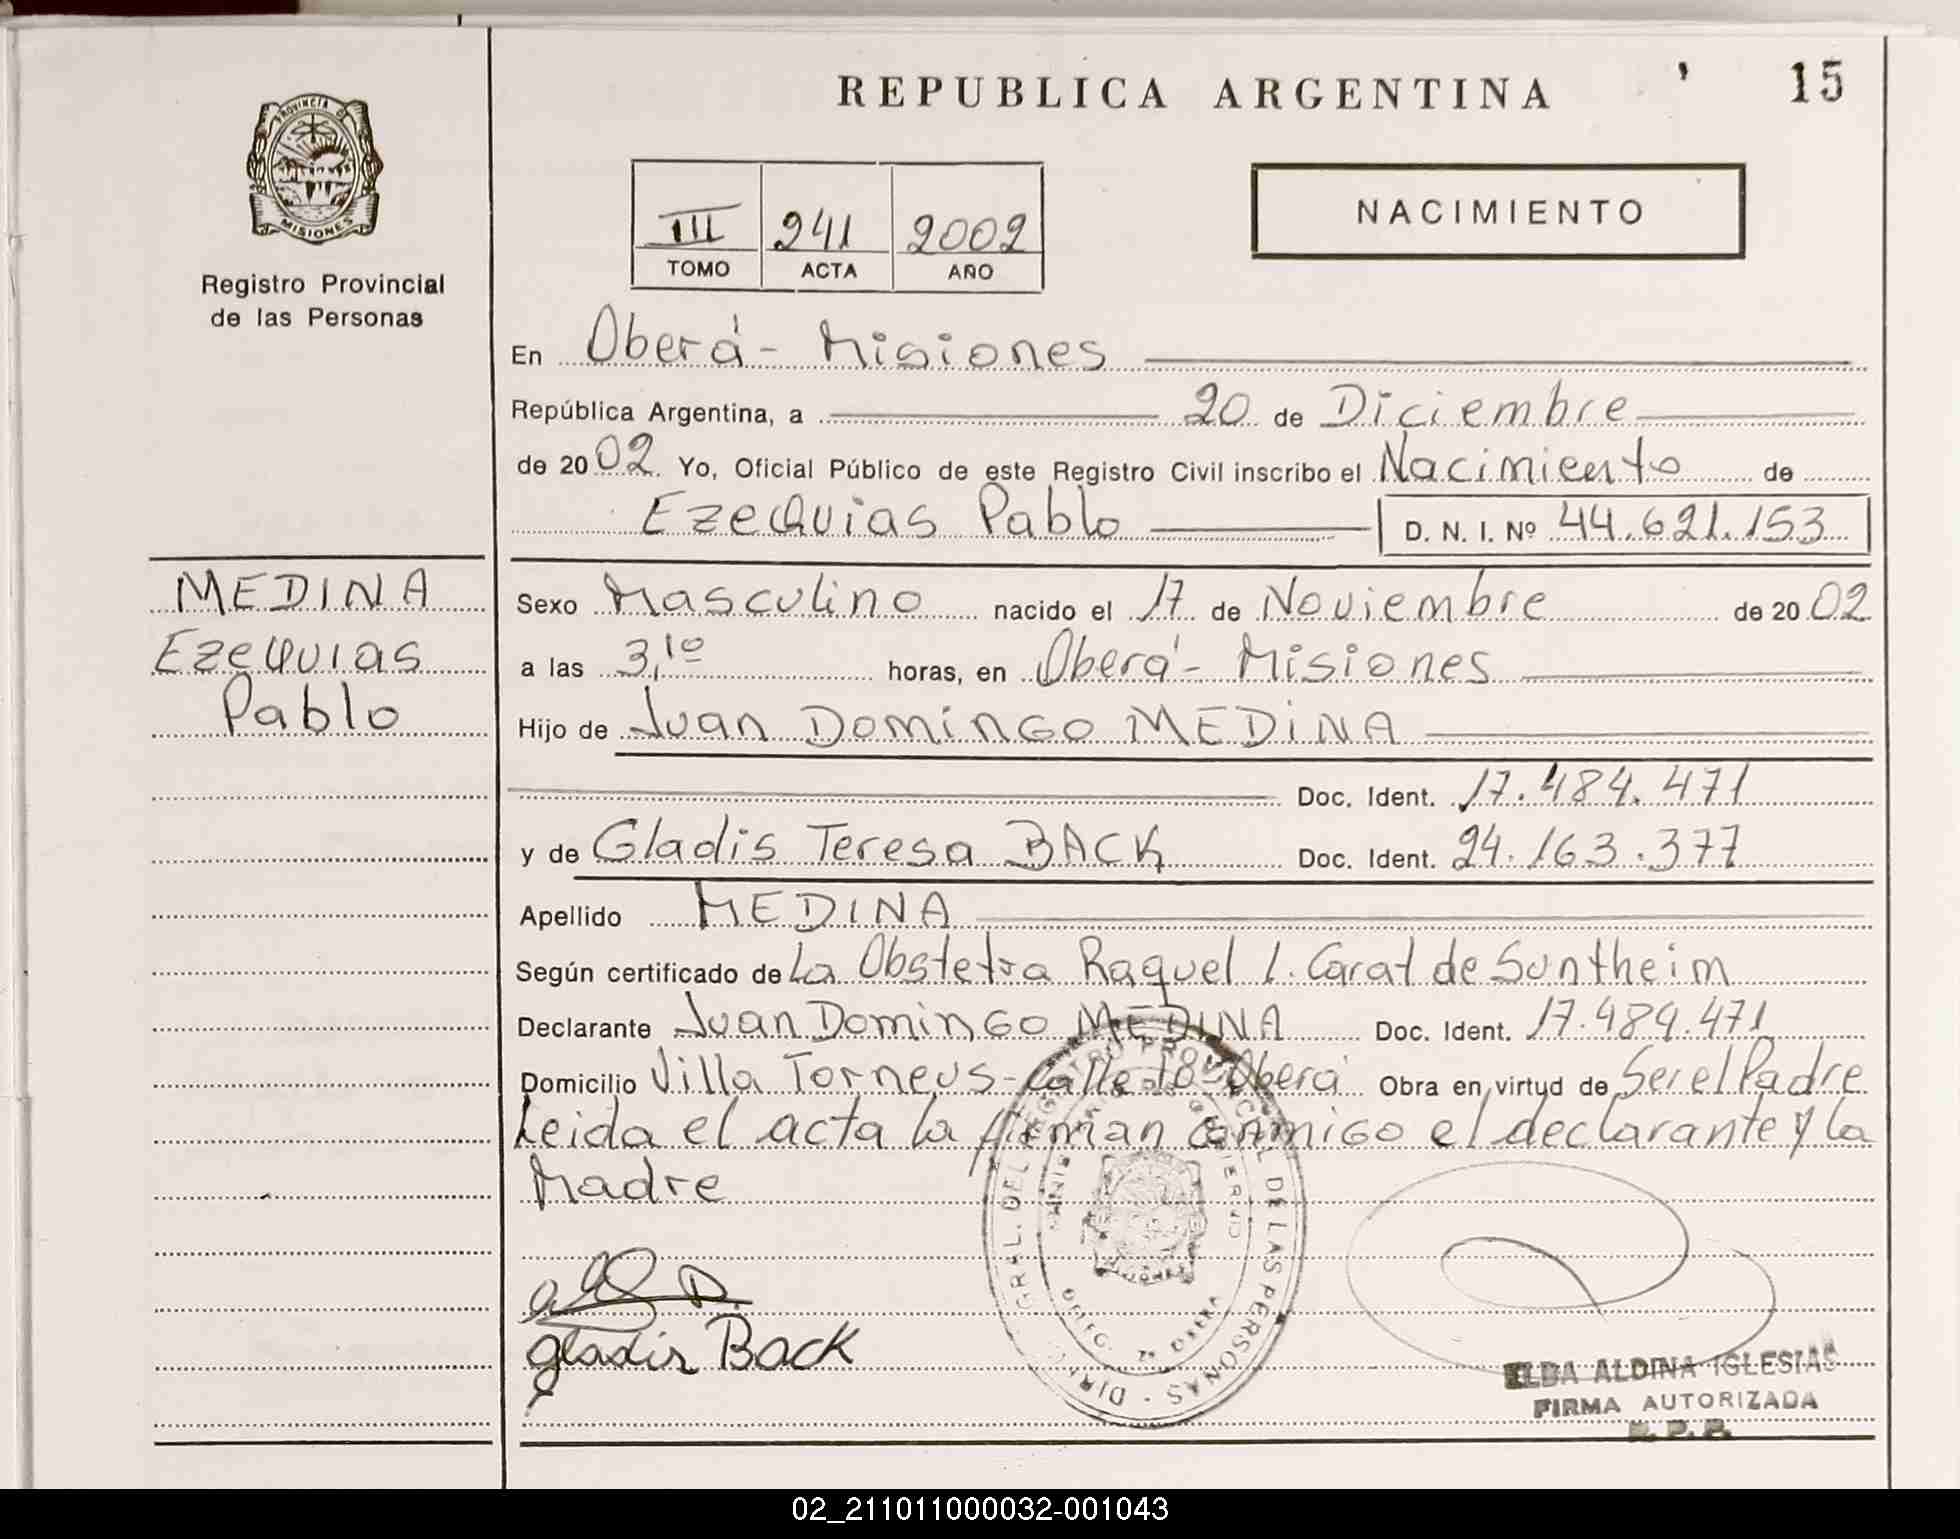 REPUBLICA ARGENTINA
15
PROVINCIA D
MISIONES
Registro Provincial
de las Personas
III 241 2002
TOMO ACTA AÑO
NACIMIENTO
En Oberá - Misiones
República Argentina, a 20 de Diciembre
de 2002. Yo, Oficial Público de este Registro Civil inscribo el Nacimiento de
Ezequias Pablo D. N. I. Nº 44.621.153
MEDINA
Ezequias
Pablo
Sexo Masculino nacido el 17 de Noviembre de 20 02
a las 3,10 horas, en Oberá - Misiones
Hijo de Juan Domingo MEDINA
Doc. Ident. 17.484.471
y de Gladis Teresa BACK Doc. Ident. 24.163.377
Apellido MEDINA
Según certificado de La Obstetra Raquel L. Carat de Sontheim
Declarante Juan Domingo MEDINA Doc. Ident. 17.484.471
Domicilio Villa Torneus - Calle 10 - Oberá Obra en virtud de Ser el Padre
Leida el acta la firman conmigo el declarante y la
Madre
DIRECC. GRAL. DEL REGISTRO PROVINCIAL DE LAS PERSONAS
MINISTERIO DE GOBIERNO
MISIONES
OBERA
gladis Back
ELBA ALDINA IGLESIAS
FIRMA AUTORIZADA
R. P. P.
02_211011000032-001043